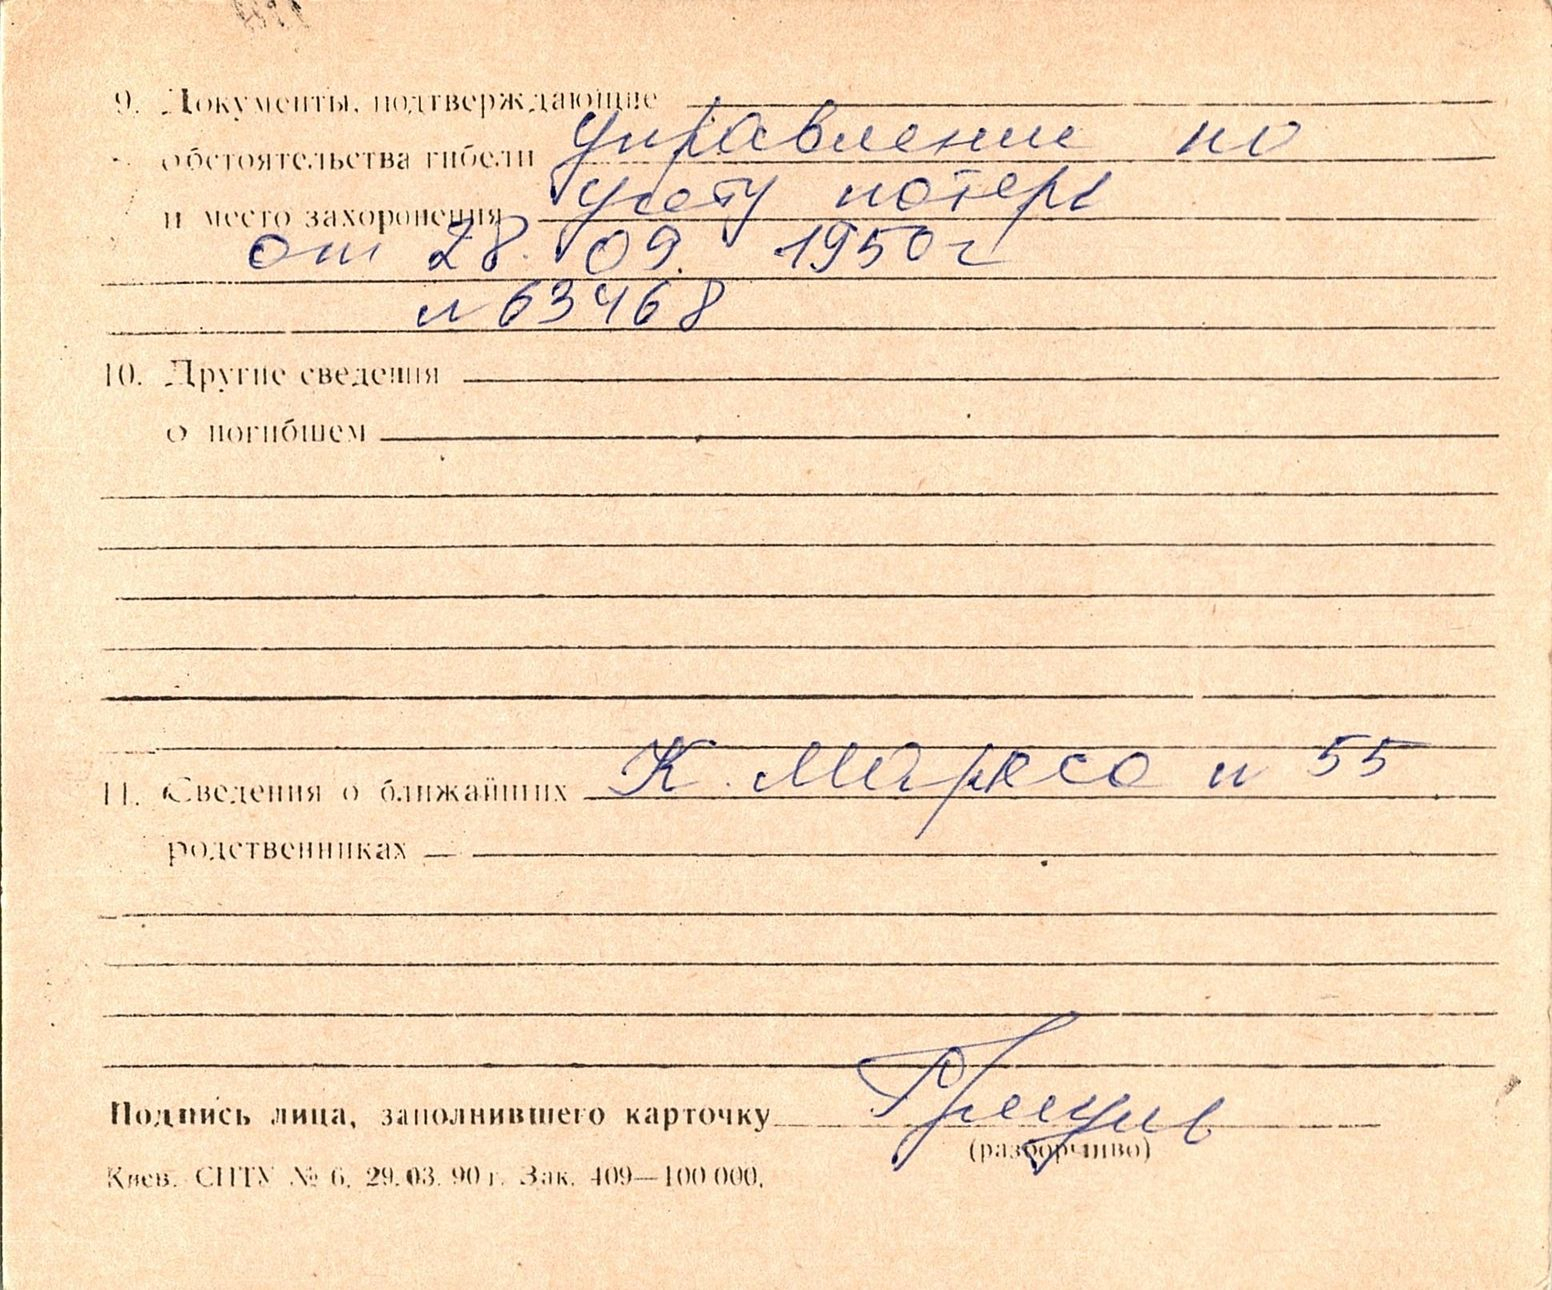 9. Документы, подтверждающие
обстоятельства гибели управление по
и место захоронения учету потерь
от 28. 09. 1950 г
н 63468
10. Другие сведения
о погибшем
К. Маркса н 55
11. Сведения о ближайших
родственниках
Подпись лица, заполнившего карточку
(разборчиво)
Киев. СПТУ № 6. 29.03.90 г. Зак. 409—100 000.